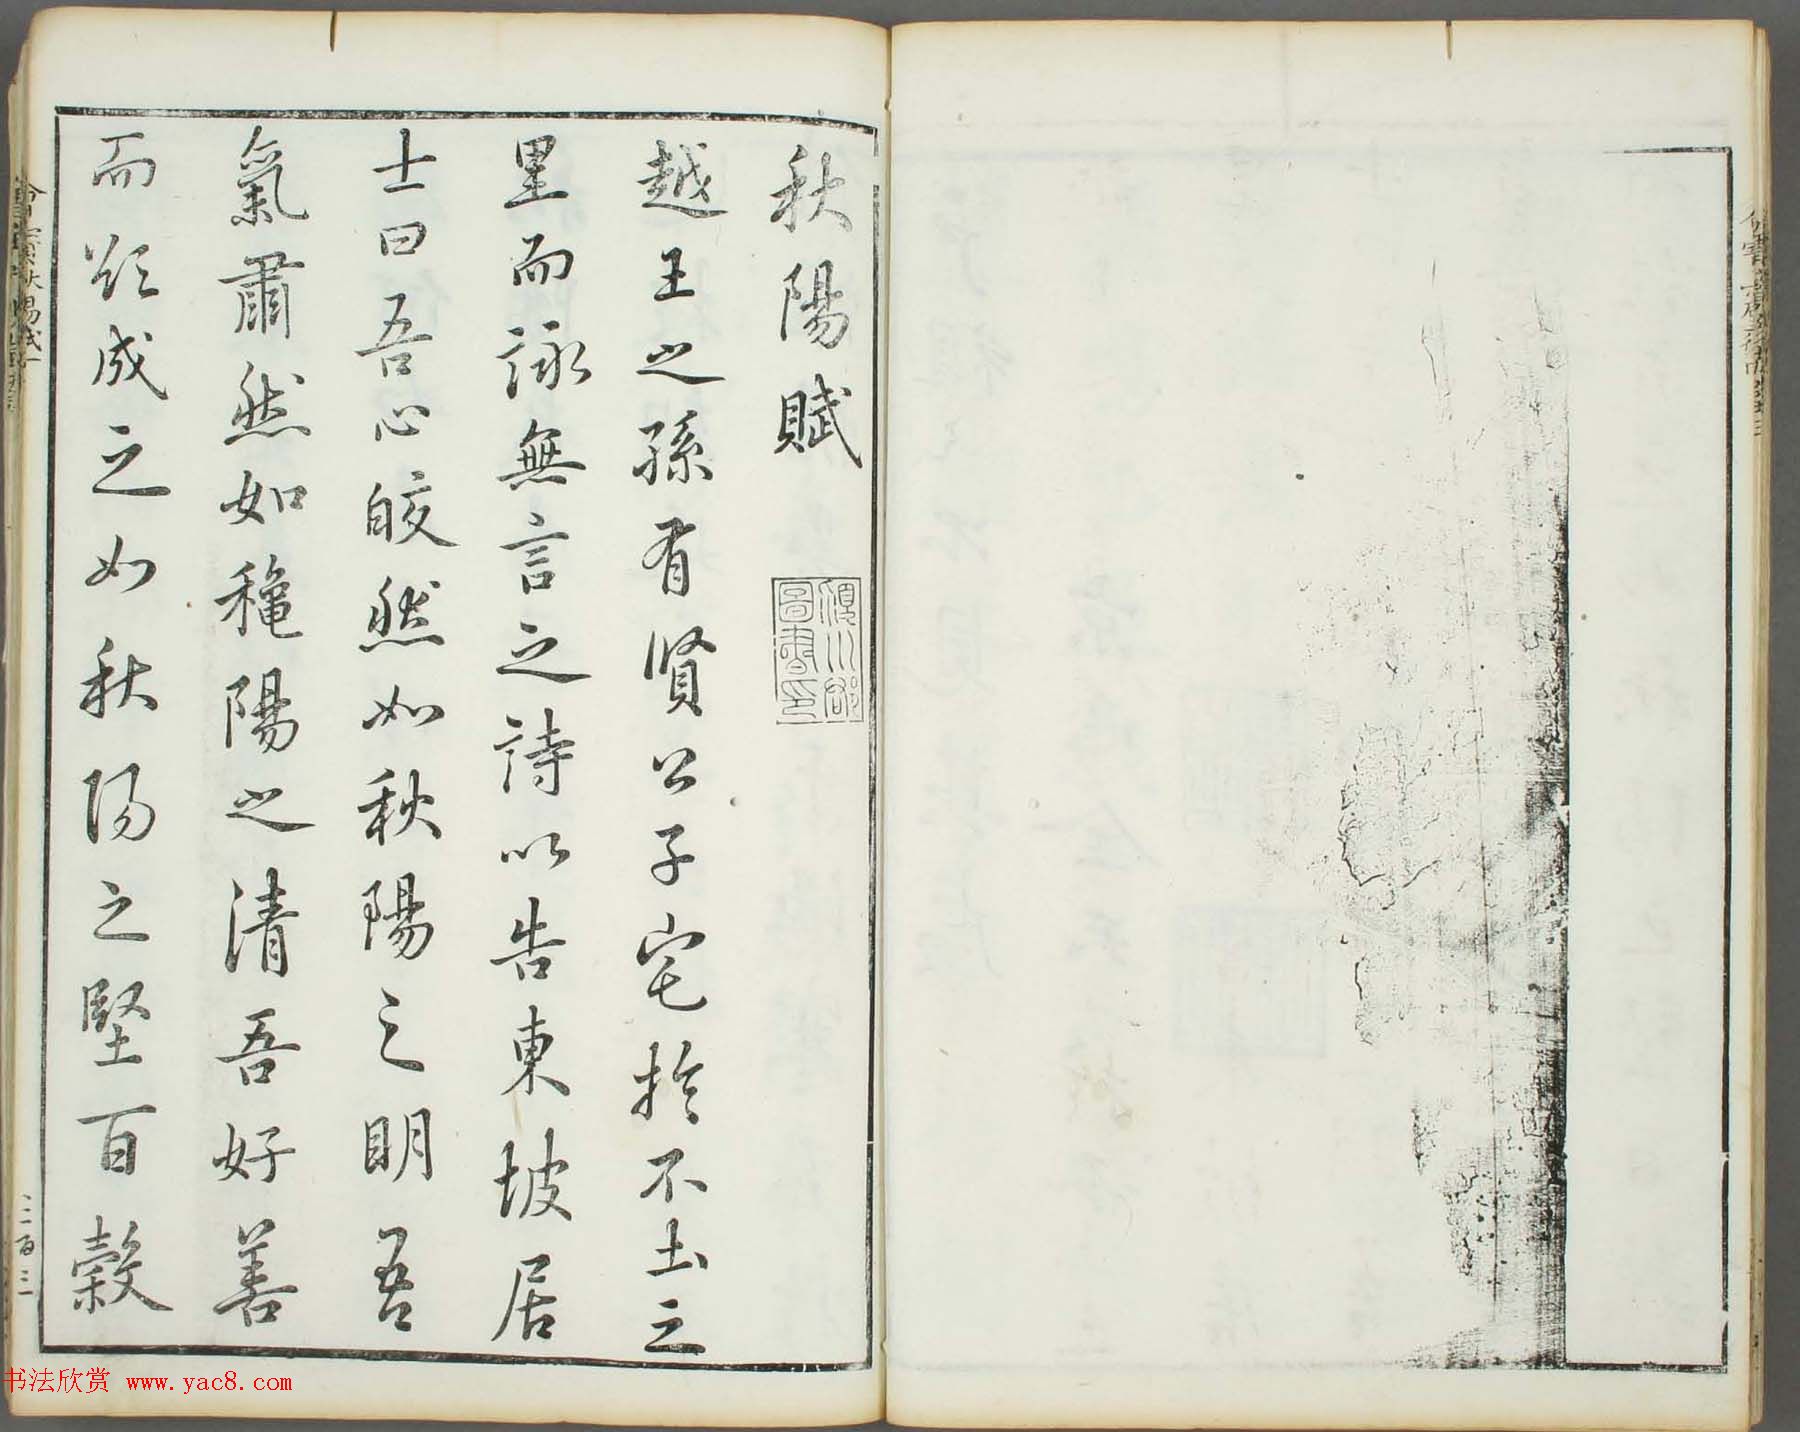 秋陽賦
圖書印
越王之孫有賢公子宅於不土之
里而詠無言之詩以告東坡居
士曰吾心皎然如秋陽之明吾
氣肅然如穐陽之清吾好善
而欲成之如秋陽之堅百穀
书法欣赏 www.yac8.com